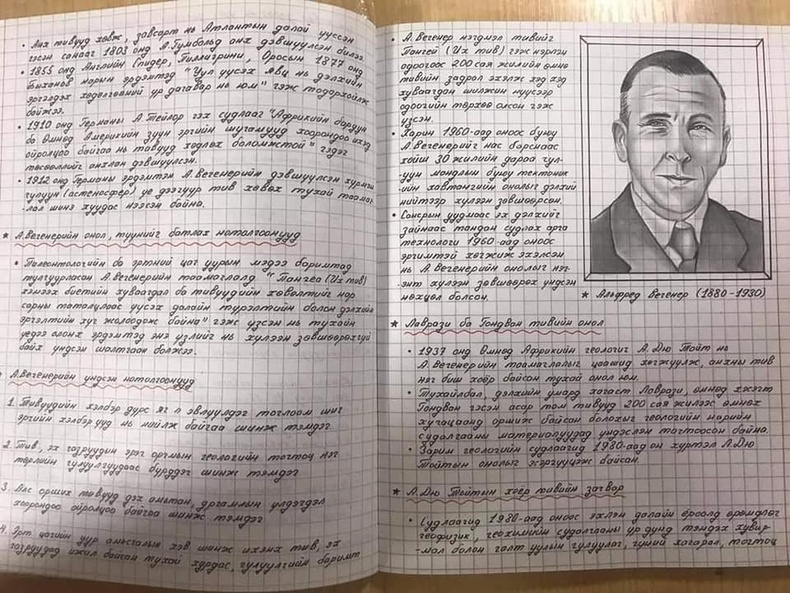 • Анх тивүүд хөвж, завсарт нь Атлантын далай үүссэн
гэсэн санааг 1803 онд А.Гумбольд анх дэвшүүлсэн билээ.
• 1855 онд Английн Снидер, Пиллигрини, Оросын 1877 онд
Быханов нарын эрдэмтэд "Уул үүсэх явц нь дэлхийн
эргэлдэх хөдөлгөөний үр дагавар нь юм" гэж тодорхойлж
байжээ.
• 1910 онд Германы А.Тейлор гэх судлааг "Африкийн баруун
ба Өмнөд Америкийн зүүн эргийн шугамууд хоорондоо ихэд
ойролцоо байгаа нь тивүүд хөдлөх боломжтой" гэдэг
төсөөллийг анхлан дэвшүүлсэн.
• 1912 онд Германы эрдэмтэн А.Вегенерийн дэвшүүлсэн хүрмэн
чулуун (астеносфер) үе дээгүүр тив хөвөх тухай таамаг-
лал шинэ хуудас нээсэн байна.
* А.Вегенерийн онол, түүнийг батлах нотолгоонууд
• Палеонтологийн ба эртний цаг уурын мэдээ баримтад
тулгуурласан А.Вегенерийн таамаглалд "Пангеа (Их тив)
хэмээх биетийн хуваагдал ба тивүүдийн хөвөлтийг нар
сарны таталцлаас үүсэх далайн түрэлтийн болон дэлхийн
эргэлтийн хүч жолооддож байна" гэж үзсэн нь тухайн
үедээ олонх эрдэмтэд энэ үзлийг нь хүлээн зөвшөөрөхгүй
байх үндсэн шалтгаан болжээ.
А.Вегенерийн үндсэн нотолгоонууд
1. Тивүүдийн хэлбэр дүрс яг л эвлүүлдэг тоглоом шиг
эргийн хэлбэрүүд нь нийлж байгаа шинж тэмдэг
2. Тив, эх газруудын эрэг орчмын геологийн тогтоц нэг
төрлийн чулуулгуудаас бүрддэг шинж тэмдэг
3. Алс орших тивүүд дэх амьтан, ургамлын үлдэгдэл
хоорондоо ойролцоо байгаа шинж тэмдэг
4. Эрт цагийн уур амьсгалын хэв шинж ихэнх тив, эх
газруудад ижил байсан тухай хурдас, чулуулгийн баримт
• А.Вегенер нэгдмэл тивийг
Пангей (Их тив) гэж нэрлэн
одоогоос 200 сая жилийн өмнө
тивийн задрал эхэлж хэд хэд
хуваагдан шилжин нүүсээр
одоогийн төрхөө олсон гэж
үзсэн.
• Харин 1960-аад оноос буюу
А.Вегенерийг нас барснаас
хойш 30 жилийн дараа чул-
уун мандлын буюу тектоник
ийн хавтангийн онолыг дэлхий
нийтээр хүлээн зөвшөөрсөн.
• Сансрын уудмаас эх дэлхийг
зайнаас тандан судлах арга
технологи 1960-аад оноос
эрчимтэй хөгжиж эхэлсэн
нь А.Вегенерийн онолыг нэг-
энт хүлээн зөвшөөрөх үндсэн
нөхцөл болсон.
* Альфред Вегенер (1880-1930)
* Лаврази ба Гондван тивийн онол
• 1937 онд Өмнөд Африкийн геологич А.Дю Тойт нь
А.Вегенерийн таамаглалыг цаашид хөгжүүлж, анхны тив
нэг биш хоёр байсан тухай онол юм.
• Тухайлбал, дэлхийн умард хагаст Лаврази, өмнөд хэсэгт
Гондван гэсэн асар том тивүүд 200 сая жилээс өмнөх
хугацаанд оршиж байсан болохыг геологийн нарийн
судалгааны материалуудад үндэслэн тогтоосон байна.
• Зарим геологийн судлаачид 1980-аад он хүртэл А.Дю
Тойтын онолыг хэрэгүүцэж байсан.
* А.Дю Тойтын хоёр тивийн загвар
• Судлаачид 1980-аад оноос эхлэн далайн ёроолд өрөмдлөг
геофизик, геохимийн судалгааны үр дүнд тэндэх хувир-
мал болон галт уулын чулуулаг, гүний хагарал, тогтоц